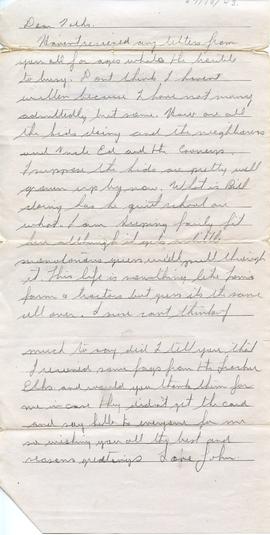 27/10/43.
Dear Folks.
Haven't received any letters from
you all for ages whats the trouble
to busy. Dont think I havent
written because I have not many
admittedly but some. How are all
the kids doing and the neighbours
and Uncle Ed and the
I suppose the kids are pretty well
grown up by now. What is Bill
doing has he quit school or
what. I am keeping fairly fit
here although it gets a little
monotonous guess will pull through
it. This life is nothing like home
farm & tractors but guess its the same
all over. I sure cant think of
much to say did I tell you that
I received some fags from the
Elks and would you thank them for
me in case they didn't get the card
and say hello to everyone for me
so wishing you all the best and
seasons greetings Love John.